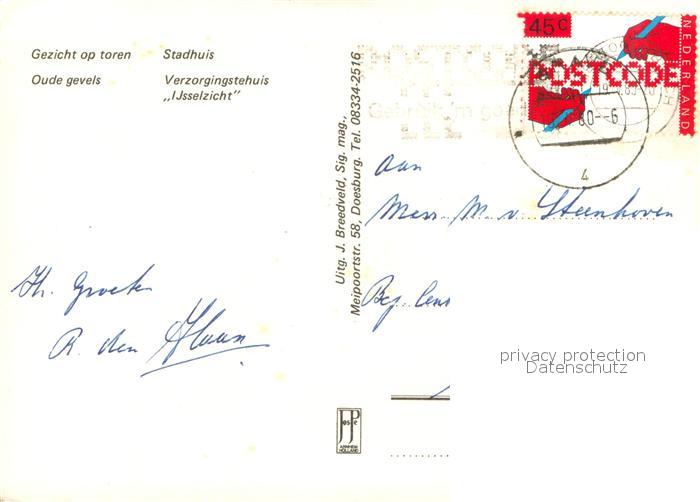 Gezicht op toren Stadhuis
Oude gevels Verzorgingstehuis
„IJsselzicht"
Uitg. J. Breedveld, Sig. mag.,
Meipoortstr. 58, Doesburg. Tel. 08334-2516
45c
NEDERLAND
POSTCODE
POSTCODE
80--6
4
Aan
M. v. Steenhoven
Hr. Groeten
R. den Haan
privacy protection
Datenschutz
JosPe
ARNHEM
HOLLAND